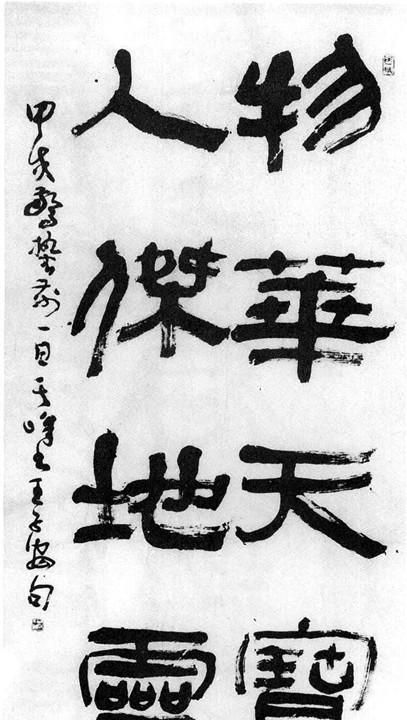 物華天寶
人傑地靈
甲戌驚蟄前一日 書王子安句